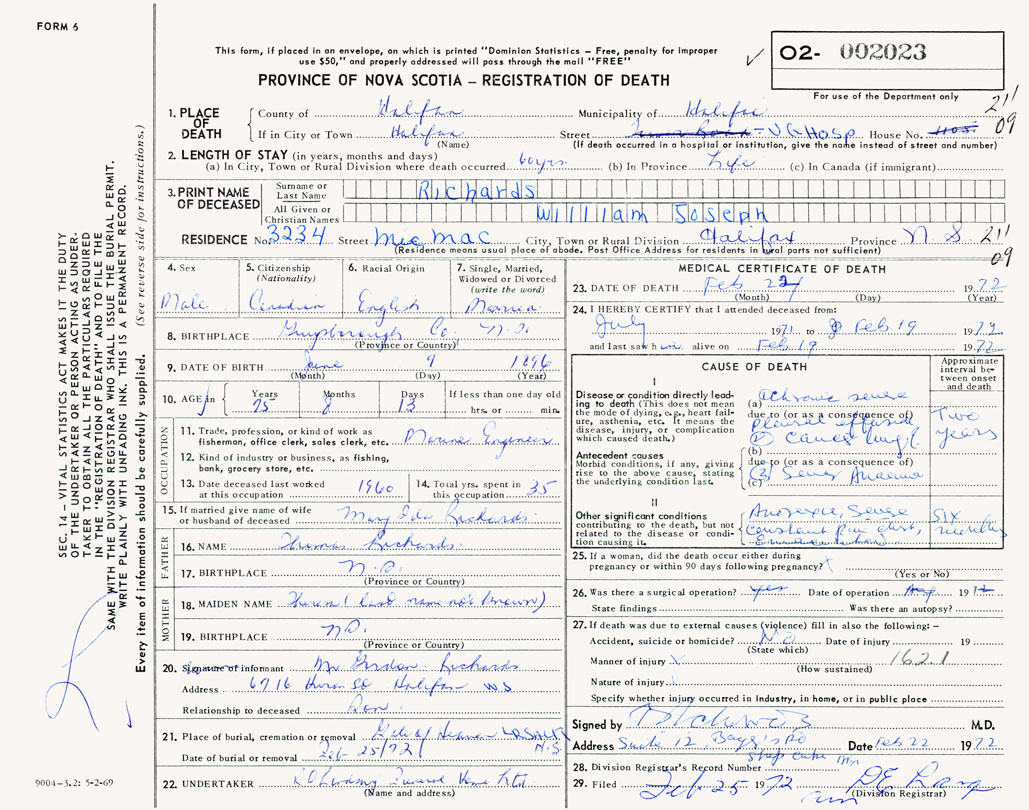 FORM 6
This form, if placed in an envelope, on which is printed "Dominion Statistics – Free, penalty for improper
use $50," and properly addressed will pass through the mail "FREE"
PROVINCE OF NOVA SCOTIA – REGISTRATION OF DEATH
O2- 002023
For use of the Department only
211
09
1. PLACE OF DEATH
County of Halifax Municipality of Halifax
If in City or Town Halifax Street – V G Hosp House No.
(Name) (If death occurred in a hospital or institution, give the name instead of street and number)
2. LENGTH OF STAY (in years, months and days)
(a) In City, Town or Rural Division where death occurred 60 yrs. (b) In Province Life (c) In Canada (if immigrant)
3. PRINT NAME OF DECEASED
Surname or Last Name Richards
All Given or Christian Names William Joseph
RESIDENCE No. 3234 Street Micmac City, Town or Rural Division Halifax Province N. S. 211
09
(Residence means usual place of abode. Post Office Address for residents in rural parts not sufficient)
4. Sex
Male
5. Citizenship
(Nationality)
Canadian
6. Racial Origin
English
7. Single, Married,
Widowed or Divorced
(write the word)
Married
8. BIRTHPLACE Guysborough Co. N.S.
(Province or Country)
9. DATE OF BIRTH June 9 1896
(Month) (Day) (Year)
10. AGE in Years Months Days If less than one day old
75 8 13 hrs. or min.
OCCUPATION
11. Trade, profession or kind of work as
fisherman, office clerk, sales clerk, etc. Marine Engineer
12. Kind of industry or business, as fishing,
bank, grocery store, etc.
13. Date deceased last worked
at this occupation 1960
14. Total yrs. spent in
this occupation 35
15. If married give name of wife
or husband of deceased Mary Ida Richards
FATHER
16. NAME Thomas Richards
17. BIRTHPLACE N.S.
(Province or Country)
MOTHER
18. MAIDEN NAME Theresa (last name not known)
19. BIRTHPLACE N.S.
(Province or Country)
20. Signature of informant Mr Gordon Richards
Address 6716 St Halifax N.S.
Relationship to deceased Son
21. Place of burial, cremation or removal Gate of Heaven N.S
Date of burial or removal Feb 25/72
22. UNDERTAKER Funeral Home Ltd.
(Name and address)
MEDICAL CERTIFICATE OF DEATH
23. DATE OF DEATH Feb 22 1972
(Month) (Day) (Year)
24. I HEREBY CERTIFY that I attended deceased from:
July 1971 to Feb. 19 1972
and last saw him alive on Feb 19 1972
CAUSE OF DEATH
Approximate
interval be-
tween onset
and death
I
Disease or condition directly lead-
ing to death (This does not mean
the mode of dying, e.g., heart fail-
ure, asthenia, etc. It means the
disease, injury, or complication
which caused death.)
(a) Chronic severe
due to (or as a consequence of)
pleural effusion
Two
years
Antecedent causes
Morbid conditions, if any, giving
rise to the above cause, stating
the underlying condition last.
(b)
due to (or as a consequence of)
(c) Severe Anaemia
II
Other significant conditions
contributing to the death, but not
related to the disease or condi-
tion causing it.
Anorexia, Severe
Constant Pain chest,
Emaciation
Six
months
25. If a woman, did the death occur either during
pregnancy or within 90 days following pregnancy?
(Yes or No)
26. Was there a surgical operation? yes Date of operation 19
State findings Was there an autopsy?
27. If death was due to external causes (violence) fill in also the following: –
Accident, suicide or homicide? No Date of injury 19
(State which)
Manner of injury 162.1
(How sustained)
Nature of injury
Specify whether injury occurred in industry, in home, or in public place
Signed by M.D.
Address Suite 12, Bayer's Rd Date Feb 22 1972
28. Division Registrar's Record Number
29. Filed Feb 25 1972
(Division Registrar)
SEC. 14 – VITAL STATISTICS ACT MAKES IT THE DUTY
OF THE UNDERTAKER OR PERSON ACTING AS UNDER-
TAKER TO OBTAIN ALL THE PARTICULARS REQUIRED
IN THE "REGISTRATION OF DEATH" AND TO FILE THE
SAME WITH THE DIVISION REGISTRAR WHO SHALL ISSUE THE BURIAL PERMIT.
WRITE PLAINLY WITH UNFADING INK. THIS IS A PERMANENT RECORD.
Every item of information should be carefully supplied. (See reverse side for instructions.)
9004–3.2: 5-2-69